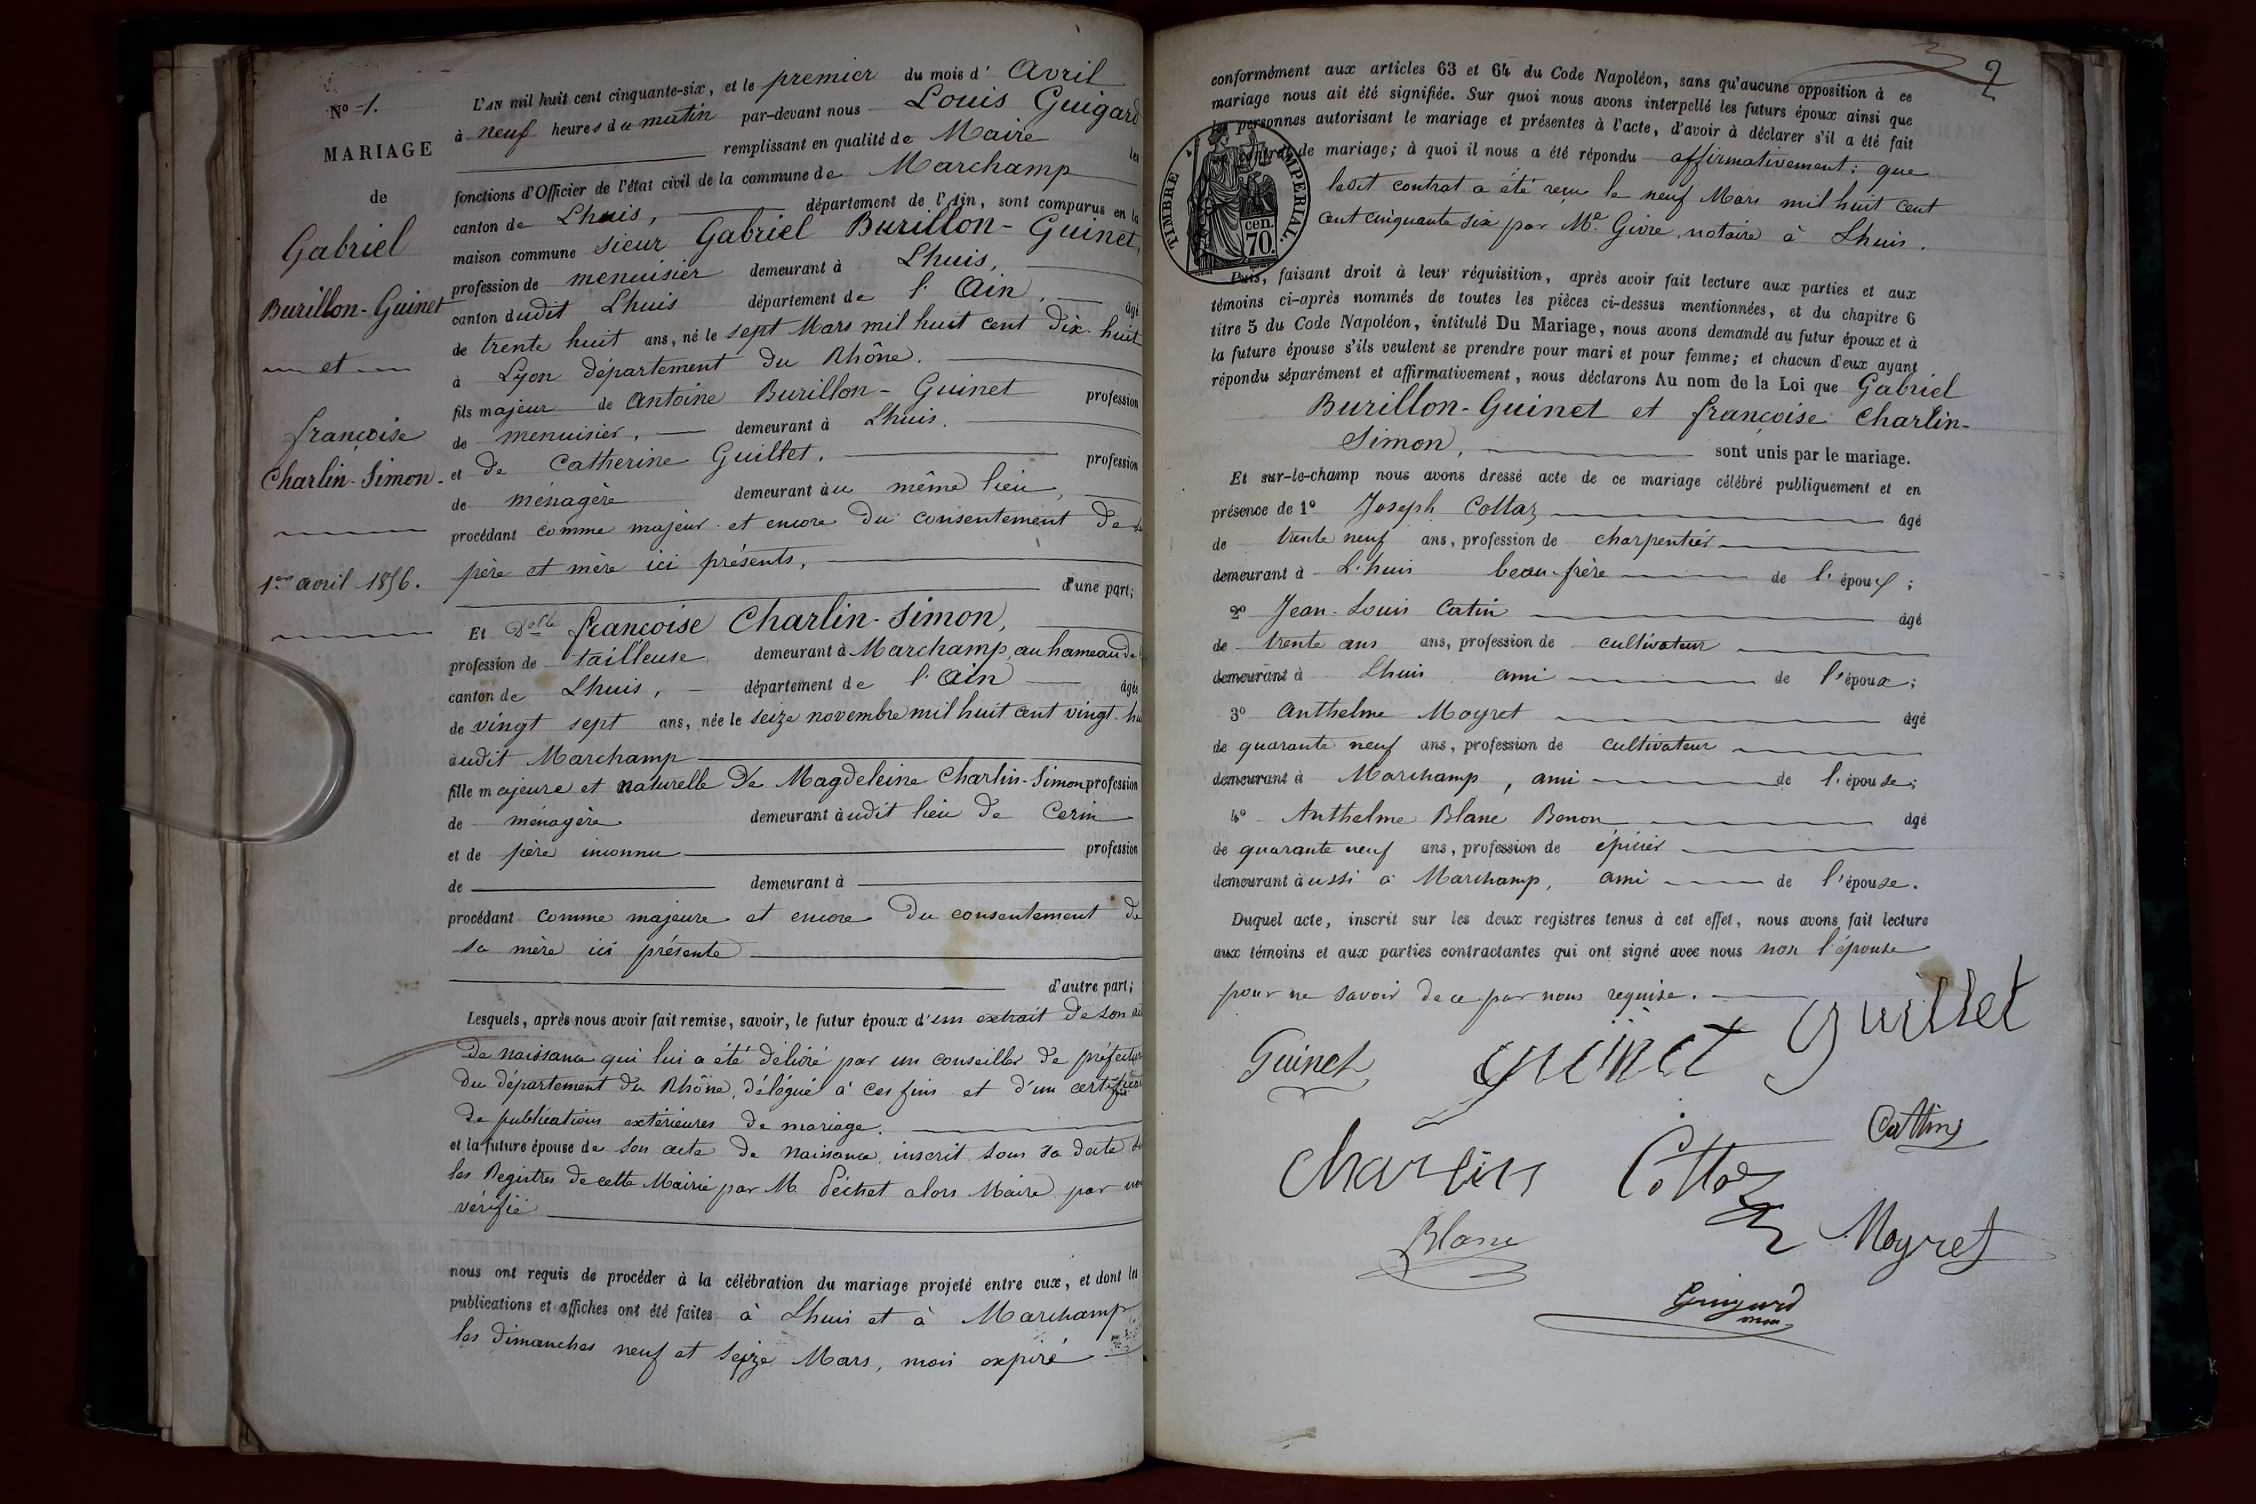 No 1.
MARIAGE
de
Gabriel
Burillon-Guinet
et
françoise
Charlin-Simon.
1er avril 1856.
L'AN mil huit cent cinquante-six, et le premier du mois d' Avril
à neuf heures du matin par-devant nous Louis Guigard
remplissant en qualité de Maire les
fonctions d'Officier de l'état civil de la commune de Marchamp
canton de Lhuis, département de l'Ain, sont comparus en la
maison commune sieur Gabriel Burillon-Guinet,
profession de menuisier demeurant à Lhuis,
canton dudit Lhuis département de l'Ain, âgé
de trente huit ans, né le sept Mars mil huit cent dix-huit
à Lyon département du Rhône.
fils majeur de Antoine Burillon-Guinet profession
de menuisier, demeurant à Lhuis.
et de Catherine Guillet. profession
de ménagère demeurant au même lieu,
procédant comme majeur et encore du consentement de
père et mère ici présents,
d'une part;
Et Delle françoise Charlin-Simon,
profession de tailleuse demeurant à Marchamp, au hameau de
canton de Lhuis, département de l'Ain âgée
de vingt sept ans, née le seize novembre mil huit cent vingt
audit Marchamp
fille majeure et naturelle de Magdeleine Charlin-Simon profession
de ménagère demeurant audit lieu de Cerin
et de père inconnu profession
de demeurant à
procédant comme majeure et encore du consentement de
sa mère ici présente
d'autre part;
Lesquels, après nous avoir fait remise, savoir, le futur époux d'un extrait de son
de naissance qui lui a été délivré par un conseiller de préfecture
du département du Rhône, délégué à ces fins et d'un certificat
de publications extérieures de mariage.
et la future épouse de son acte de naissance inscrit sous sa date
les Registres de cette Mairie par M. Péchet alors Maire par nous
vérifié
nous ont requis de procéder à la célébration du mariage projeté entre eux, et dont les
publications et affiches ont été faites à Lhuis et à Marchamp
les dimanches neuf et seize Mars, mois expiré
2
conformément aux articles 63 et 64 du Code Napoléon, sans qu'aucune opposition à ce
mariage nous ait été signifiée. Sur quoi nous avons interpellé les futurs époux ainsi que
les personnes autorisant le mariage et présentes à l'acte, d'avoir à déclarer s'il a été fait
contrat de mariage; à quoi il nous a été répondu affirmativement: que
ledit contrat a été reçu le neuf Mars mil huit cent
cent cinquante six par Me Givre, notaire à Lhuis.
TIMBRE IMPERIAL.
cen.
70.
Puis, faisant droit à leur réquisition, après avoir fait lecture aux parties et aux
témoins ci-après nommés de toutes les pièces ci-dessus mentionnées, et du chapitre 6
titre 5 du Code Napoléon, intitulé Du Mariage, nous avons demandé au futur époux et à
la future épouse s'ils veulent se prendre pour mari et pour femme; et chacun d'eux ayant
répondu séparément et affirmativement, nous déclarons Au nom de la Loi que Gabriel
Burillon-Guinet et françoise Charlin-
Simon, sont unis par le mariage.
Et sur-le-champ nous avons dressé acte de ce mariage célébré publiquement et en
présence de 1o Joseph Cottaz âgé
de trente neuf ans, profession de charpentier
demeurant à Lhuis beau-frère de l'époux;
2o Jean-Louis Catin âgé
de trente ans ans, profession de cultivateur
demeurant à Lhuis ami de l'époux;
3o Anthelme Moyret âgé
de quarante neuf ans, profession de cultivateur
demeurant à Marchamp, ami de l'épouse;
4o Anthelme Blanc Benon âgé
de quarante neuf ans, profession de épicier
demeurant aussi à Marchamp, ami de l'épouse.
Duquel acte, inscrit sur les deux registres tenus à cet effet, nous avons fait lecture
aux témoins et aux parties contractantes qui ont signé avec nous non l'épouse
pour ne savoir de ce par nous requise.
Guinet guinet guillet
Charlin Cottaz Cattin
Blanc Moyret
Guigard